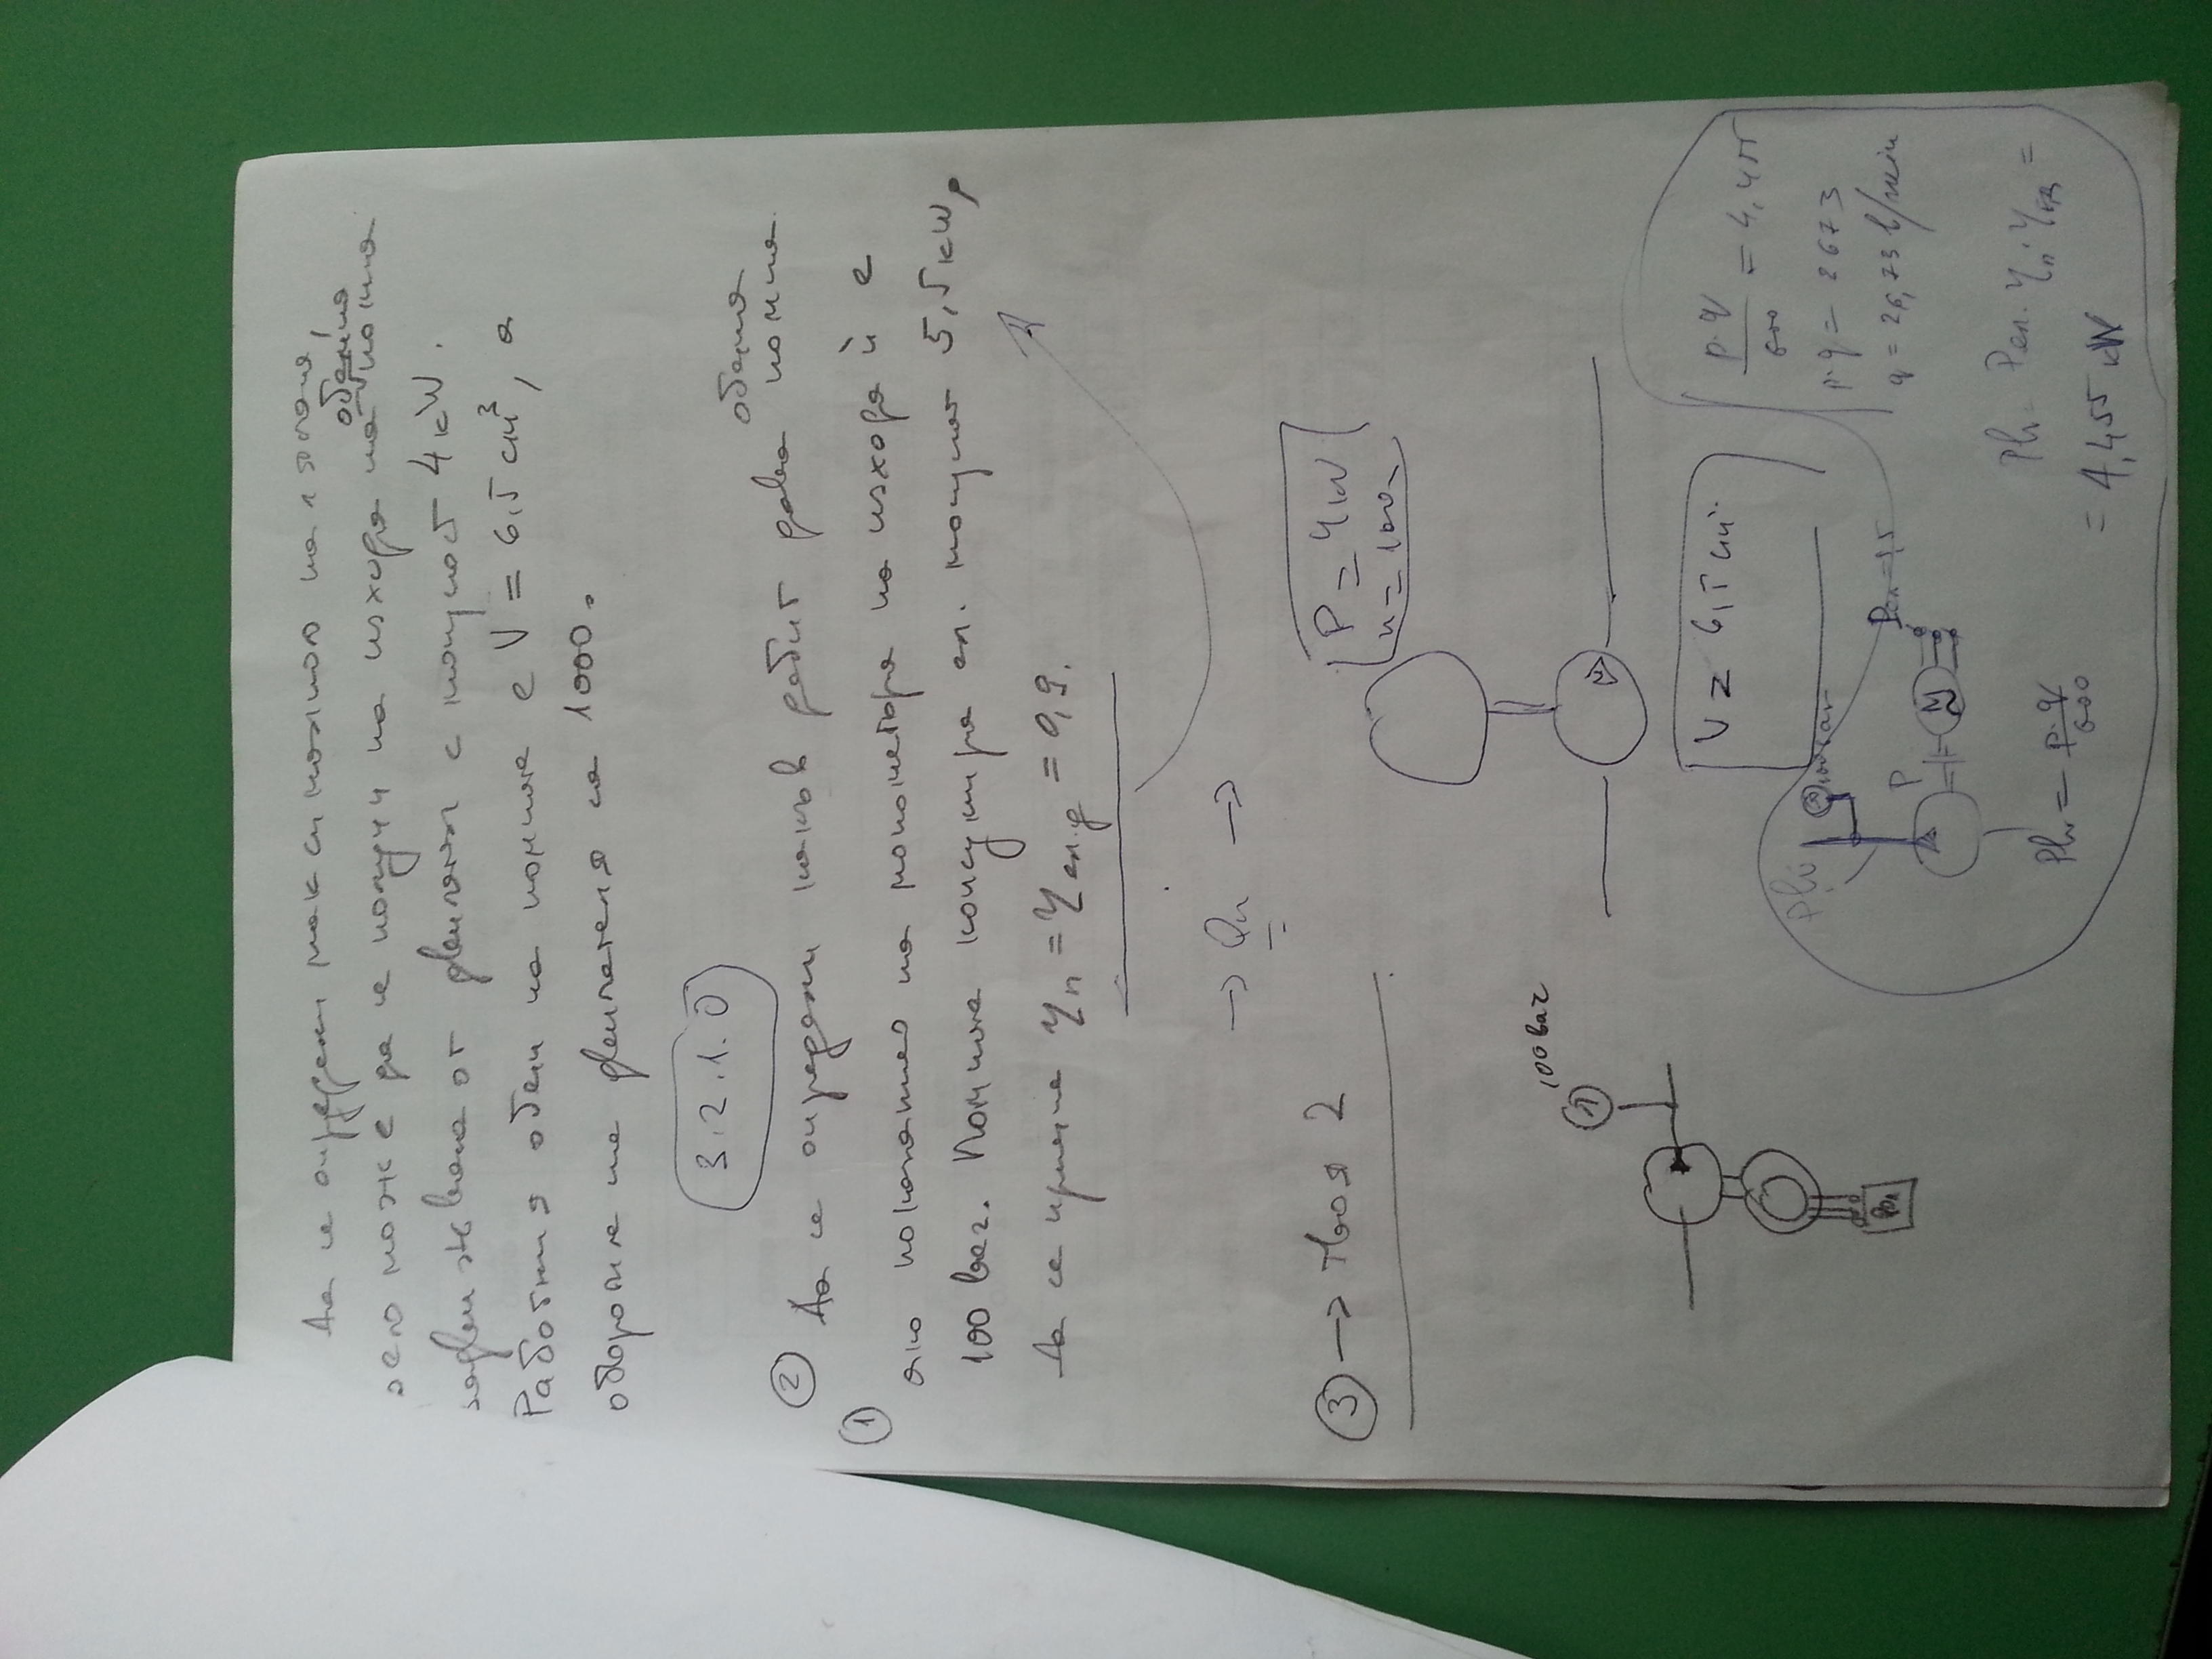 Да се определи максималното налягане,
което може да се получи на изхода на обемна помпа
задвижвана от двигател с мощност 4 kW.
Работния обем на помпата е V = 6,5 cm³, а
оборотите на двигателя са 1000.
3.2.1.0
② Да се определи какъв дебит дава обемна помпа
①
ако показанието на манометъра на изхода ѝ е
100 bar. Помпата консумира ел. мощност 5,5 kW,
Да се приеме ηп = ηел.д = 0,9.
→ Qn →
③ → твоя 2
P = 4kW
n = 1000
V = 6,5 cm³
100 bar
p.q/600 = 4,455
p.q = 2673
q = 26,73 l/min
Ph = Pел. ηп. ηед =
= 4,455 kW
Ph
100 bar
P
M
Pел = 5,5
Ph = p.q/600